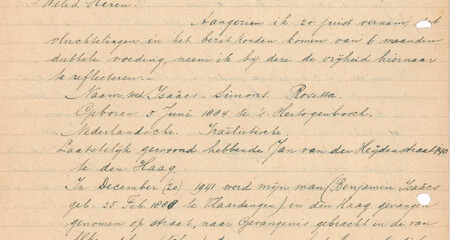 Weled Heren.
Aangezien ik zo juist vernam, dat
vluchtelingen in het bezit konden komen van 6 maanden
dubbele voeding, neem ik bij deze de vrijheid hiernaar
te reflecteren.
Naam: Isaäcs. Simons. Rosetta.
Geboren 5 Juni 1884 te 's-Hertogenbosch.
Nederlandsche. Israëlietische.
Laatstelijk gewoond hebbende Jan van der Heijdenstraat
te den Haag.
In December (20) 1941 werd mijn man (Benjamin Isaäcs
geb. 25 Feb. 1888 te Vlaardingen) in den Haag gevangen
genomen op straat, naar Gevangenis gebracht en de van